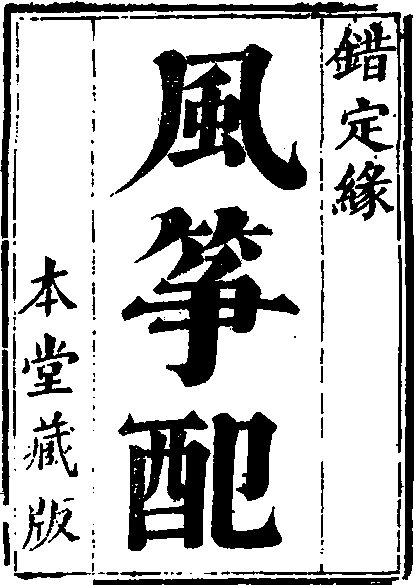 錯定緣
風箏配
本堂藏版